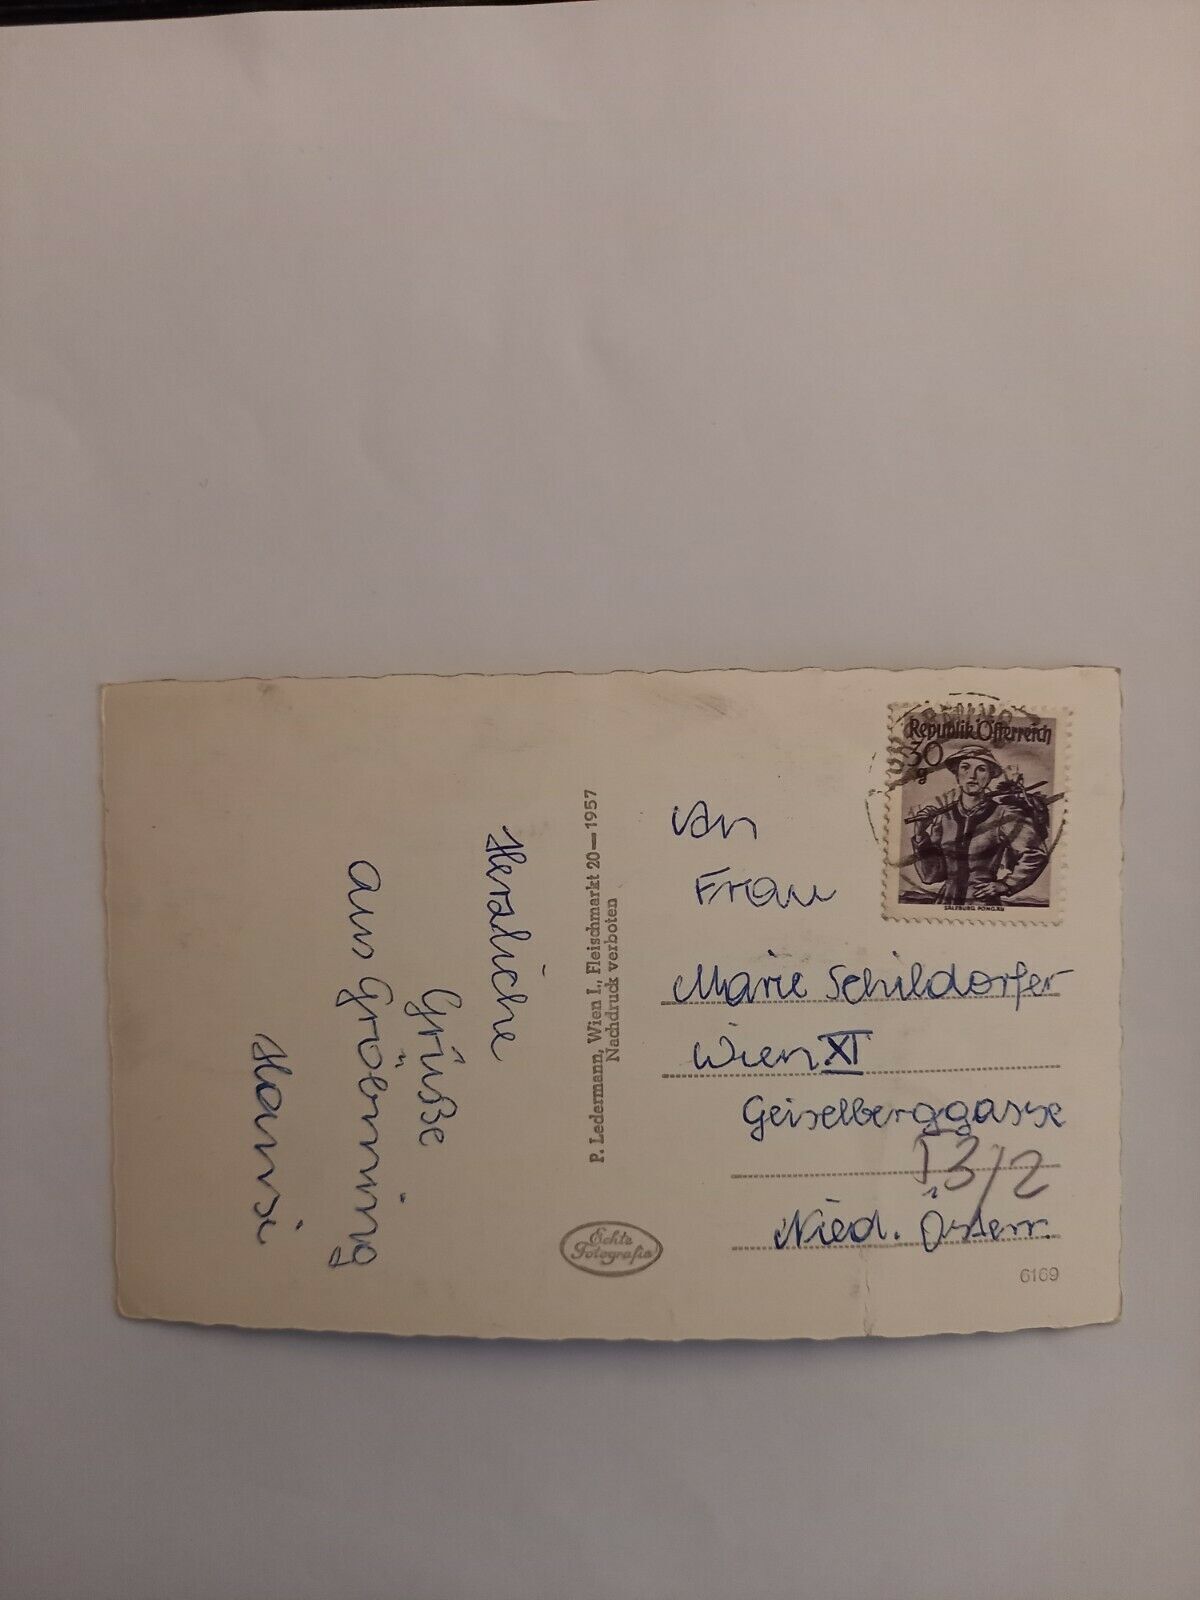 Herzliche
Grüße
aus Gröbming
Hansi
P. Ledermann, Wien I., Fleischmarkt 20—1957
Nachdruck verboten
Echte
Fotografie
Republik Österreich
30
g
SALZBURG, PONGAU
An
Frau
Marie Schildorfer
Wien XI
Geiselberggasse
53/2
Nied. Österr.
6169